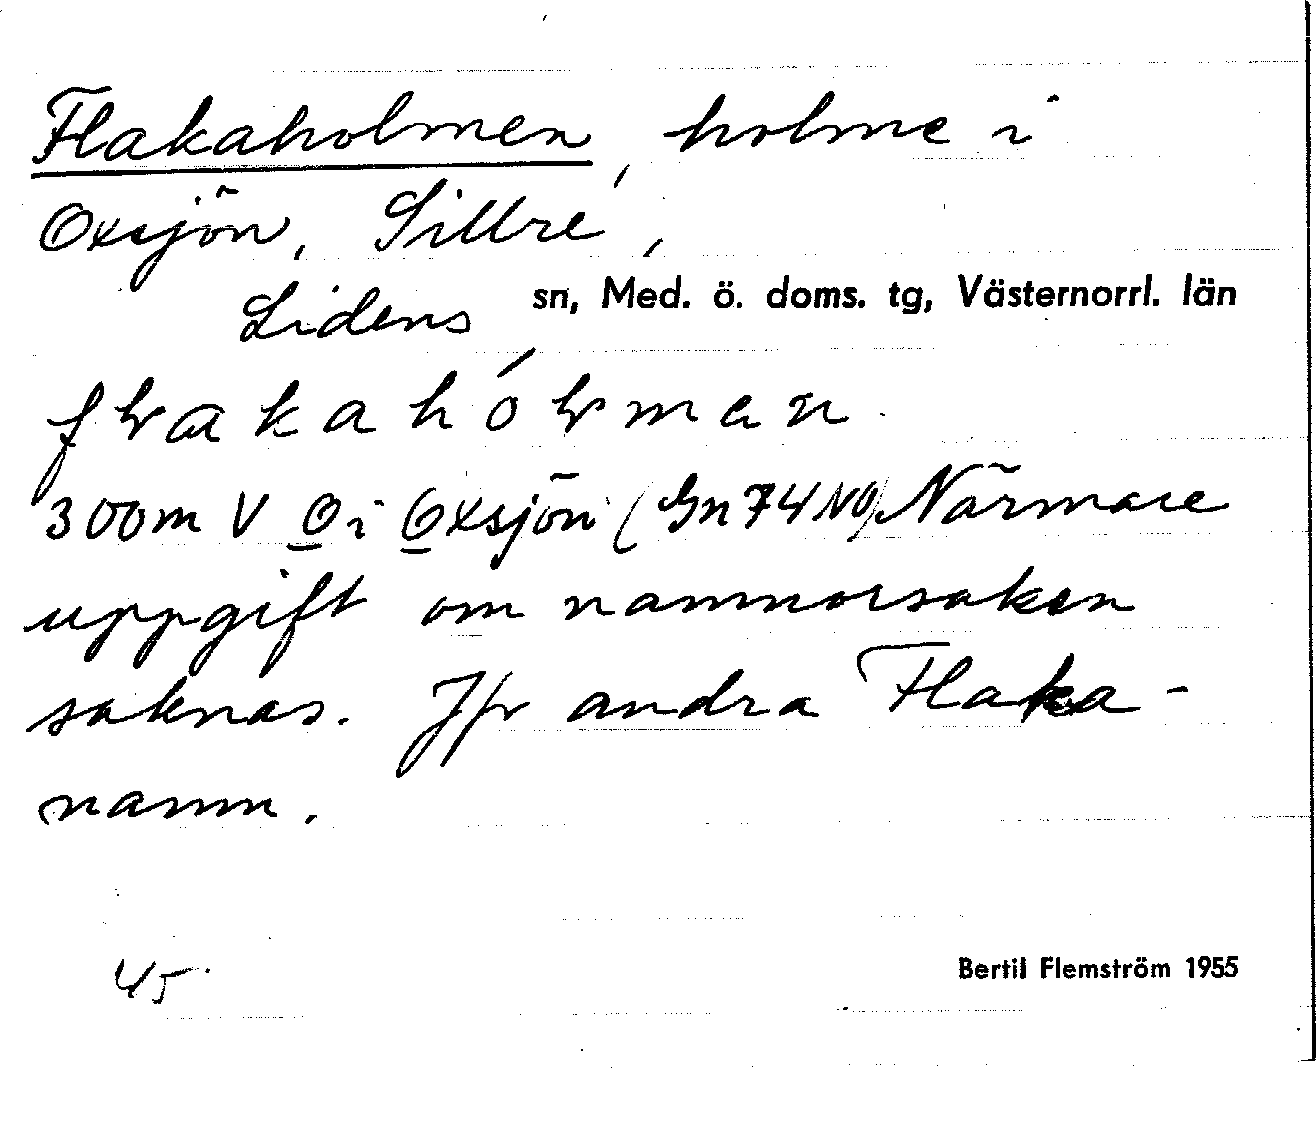 Flakaholmen, holme i
Oxsjön, Sillre,
Lidens sn, Med. ö. doms. tg, Västernorrl. län
flakahólman
300m V O i Oxsjön (Gn74NO) Närmare
uppgift om namnorsaken
saknas. Jfr andra Flaka-
namn.
45
Bertil Flemström 1955